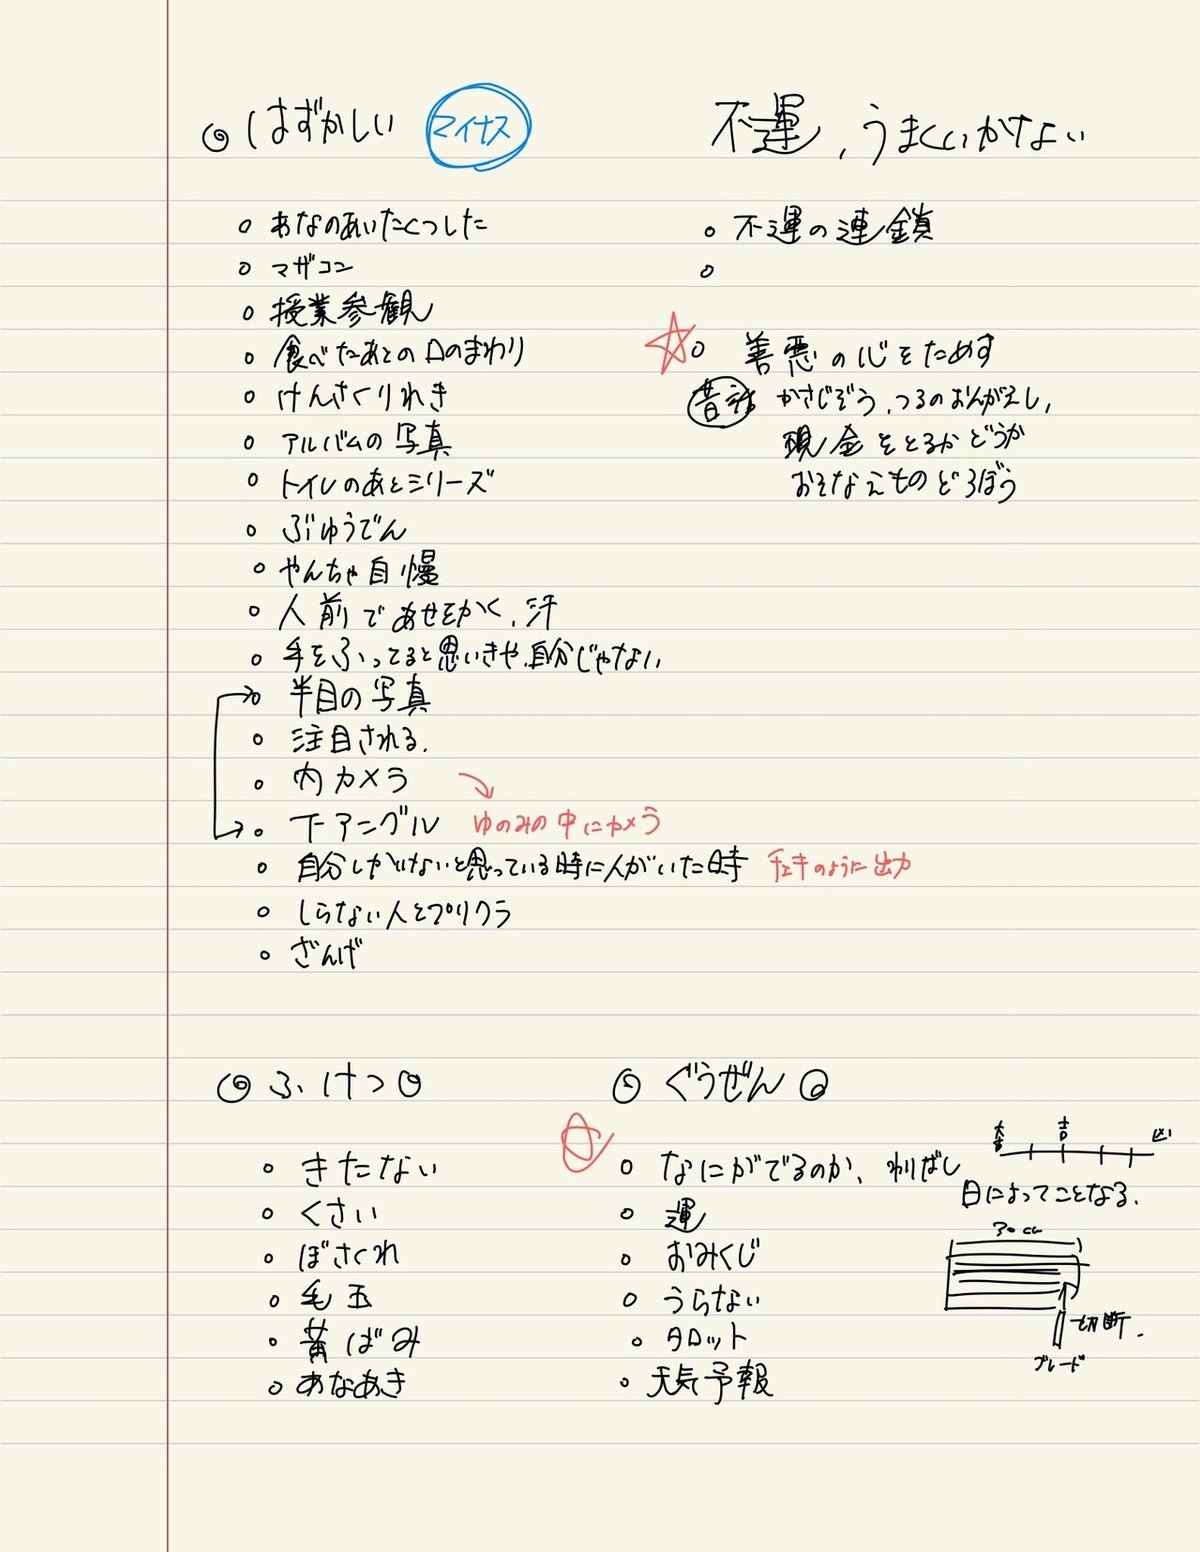 はずかしい
マイナス
あなのあいたくつした
マザコン
授業参観
食べたあとの口のまわり
けんさくりれき
アルバムの写真
トイレのあとシリーズ
ぶゆうでん
やんちゃ自慢
人前であせをかく、汗
手をふってると思いきや、自分じゃない
半目の写真
注目される.
内カメラ
下アングル ゆのみの中にカメラ
自分しかいないと思っている時に人がいた時 チェキのように出力
しらない人とプリクラ
ざんげ
不運、うまくいかない
不運の連鎖
善悪の心をためす
昔話 かさじぞう、つるのおんがえし、
現金をとるかどうか
おそなえものどろぼう
ふけつ
きたない
くさい
ぼさくれ
毛玉
黄ばみ
あなあき
ぐうぜん
なにがでるのか、わりばし
運
おみくじ
うらない
タロット
天気予報
大吉 吉 凶
日によってことなる.
30cm
切断.
ブレード